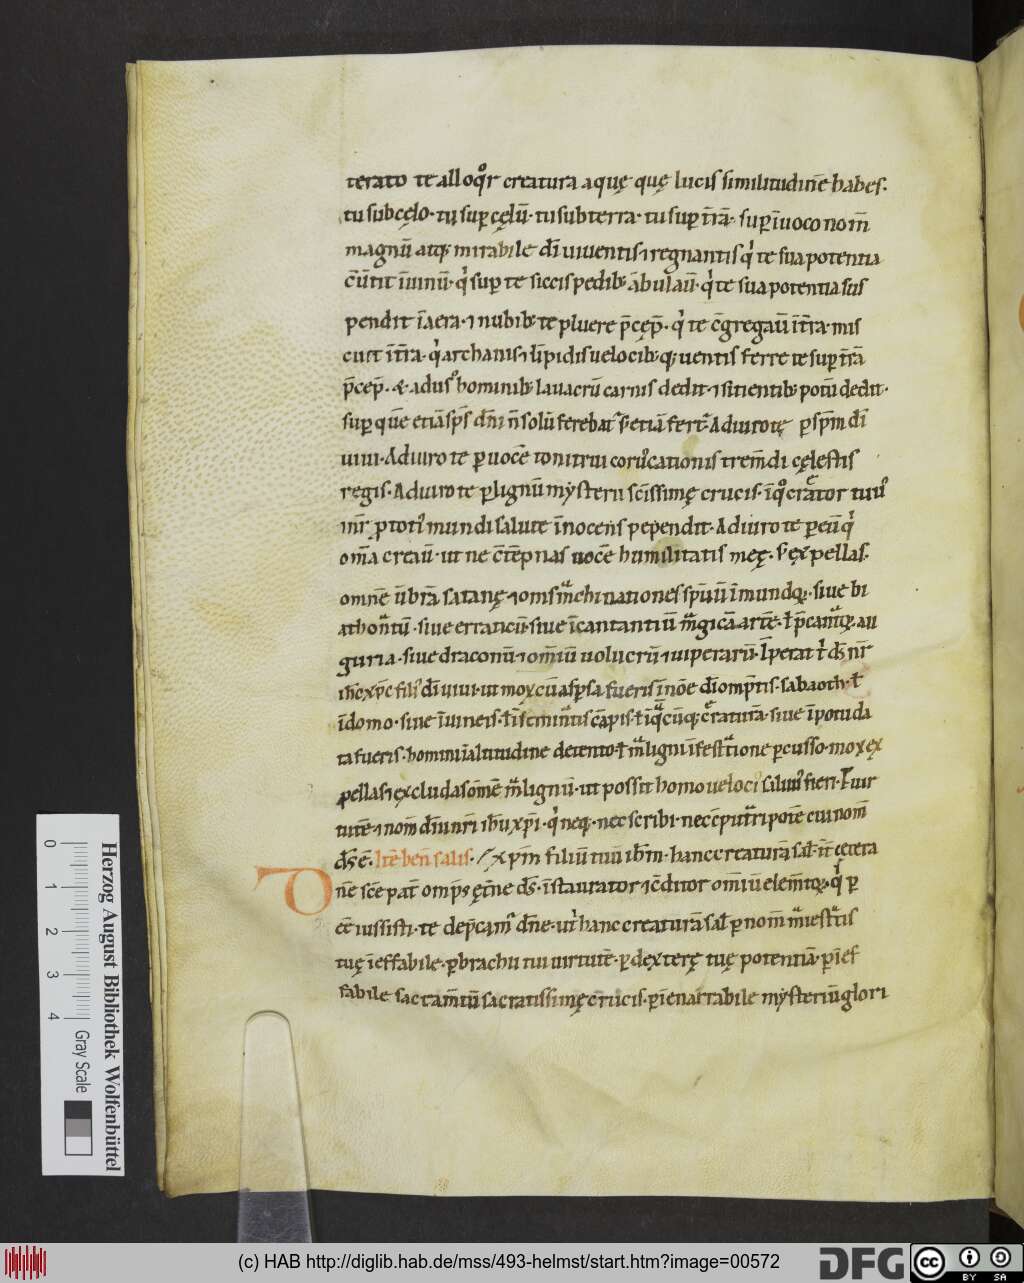 terato te alloqͦr creatura aquę quę lucis similitudinē habes.
tu sub cęlo· tu sup̱ cęlū· tu sub terra· tu sup̱ t̄rā· sup̱ īuoco nom̄
magnū atq; mirabile dī uiuentis ⁊ regnantis qͥ te sua potentia
sup̱ te siccis pedib; ābulauͥ· qͥ te sua potentia sus
pendit ī aera· ⁊ nubib; te pluere p̄cęp̄· qͥ te c̄gregauͥ ī t̄ra· mis
cuit ī t̄ra· uelocib; q; uentis ferre te sup̱ t̄rā
p̄cep̄· & ad usͦ hominib; lauacrū carnis dedit ⁊ sitientib; potū dedit·
sup̱ quē etiā sp̄s dn̄i n̄ solū ferebat᷑ s; etiā fert᷑· Adiuro te p̱ sp̄m dī
uiui· Adiuro te p̱ uocē tonitrui coruscationis trem̄di cęlestis
regis· Adiuro te p̱ lignū mẏsterii sc̄issimę crucis· ī qͦ creator tuuͦ
p̱ totiͧ mundi salute īnocens pependit· Adiuro te p̱ eū qͥ
om̄a creauͥ· ut ne c̄tēpnas uocē humilitatis meę· s; expellas
omnē ūbrā satanę ⁊ om̄s machinationes sp̄uū īmundoꝝ· siue bi
athonatū· siue erraticū· siue īcantantiū magicā artē· ł p̄cantiū· au
guria· siue draconū ⁊ om̄iū uolucrū ⁊ uiperarū· Īperat t̄ ds̄ nr̄
ih̄c xp̄c filiͧ dī uiui· ut mox cū asp̱sa fueris ī nōe dī omp̄tis· sabaoth· ł
ī domo· siue ī uineis· ł ī seminatis cāpis· ł ī quacūq; creaturā· siue ī potu da
ta fueris· hominū ualitudine detento· ł maligni īfestatione p̱cusso· mox ex
pellas ⁊ excludas omē malignū· ut possit homo uelociͧ saluuͥ fieri· p̱ uir
tutē ⁊ nom̄ dn̄i nr̄i ih̄u xp̄i· qͥ neq; nec scribi· nec c̄putari potē cui nom̄
ds̄ ē· Itē ben̄ salis· Exp̄m filiū tuū ih̄m· hanc creaturā sał· it̄ cetera
Dn̄e sc̄e pat̄ omp̄s ęt̄ne ds̄· īstaurator ⁊ c̄ditor om̄iū elemtoꝝ· qͥ p̱
cē iussisti· te dep̄camͬ dn̄e· utͥ hanc creaturā sał p̱ nom̄ maiestatis
tuę īeffabile· p̱ brachii tui uirtutē· p̱ dexterę tuę potentiā· p̱ īef
fabile sacram̄tū sacratissimę crucis· p̱ īenarrabile mẏsteriū glori
Herzog August Bibliothek Wolfenbüttel
0 1 2 3 4
Gray Scale
(c) HAB http://diglib.hab.de/mss/493-helmst/start.htm?image=00572
DFG
cc BY SA